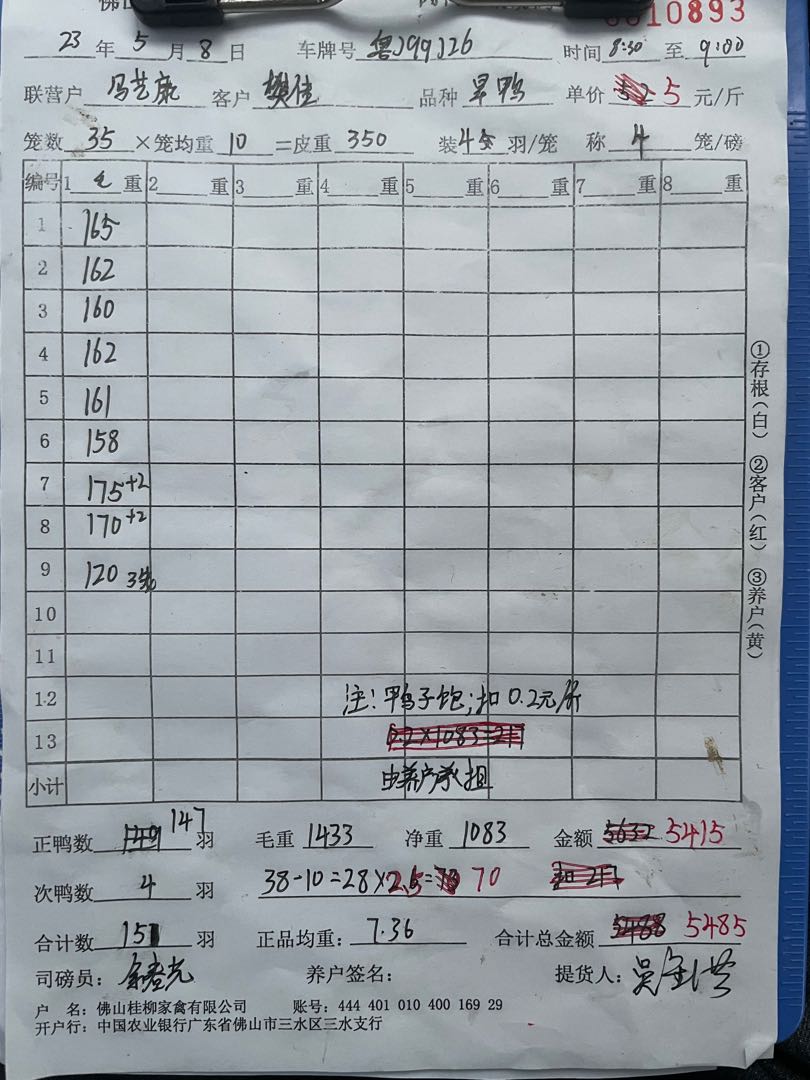 佛山
0010893
23 年 5 月 8 日 车牌号 粤J99J26 时间 8:30 至 9:00
联营户 冯艺康 客户 樊佳 品种 旱鸭 单价 5 元/斤
笼数 35 ×笼均重 10 =皮重 350 装 4 羽/笼 称 4 笼/磅
编号 1 毛 重 2 重 3 重 4 重 5 重 6 重 7 重 8 重
1 165
2 162
3 160
4 162
5 161
6 158
7 175+2
8 170+2
9 120 3笼
10
11
12 注:鸭子饱;扣0.2元/斤
13 0.2×1083=217
小计 由养户承担
①存根(白) ②客户(红) ③养户(黄)
正鸭数 147 羽 毛重 1433 净重 1083 金额 5632 5415
次鸭数 4 羽 38-10=28×2.5=70 70 扣217
合计数 151 羽 正品均重: 7.36 合计总金额 5485
司磅员: 养户签名: 提货人:
户 名: 佛山桂柳家禽有限公司 账号: 444 401 010 400 169 29
开户行: 中国农业银行广东省佛山市三水区三水支行